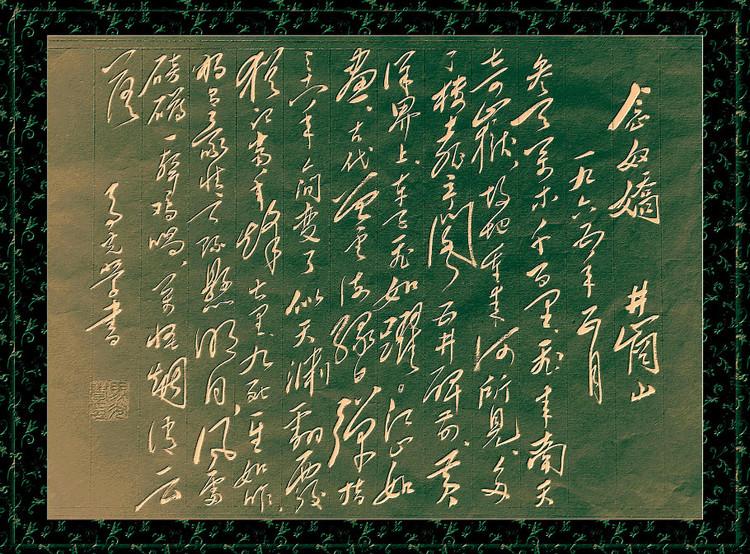 念奴嬌 井崗山
一九六五年五月
参天万木千百里飞来南天
奇嶽、故地重来何所見多
了楼台亭閣 五井碑前 黄
洋界上、车子飞如躍。江山如
画、古代曾云海绿。彈指
三十八年 人间变了 似天渊翻覆
犹记当年烽火里九死一生如昨
独有豪情天际悬明月风雷
磅礴一声鸡唱、万怪烟消云
落
学書